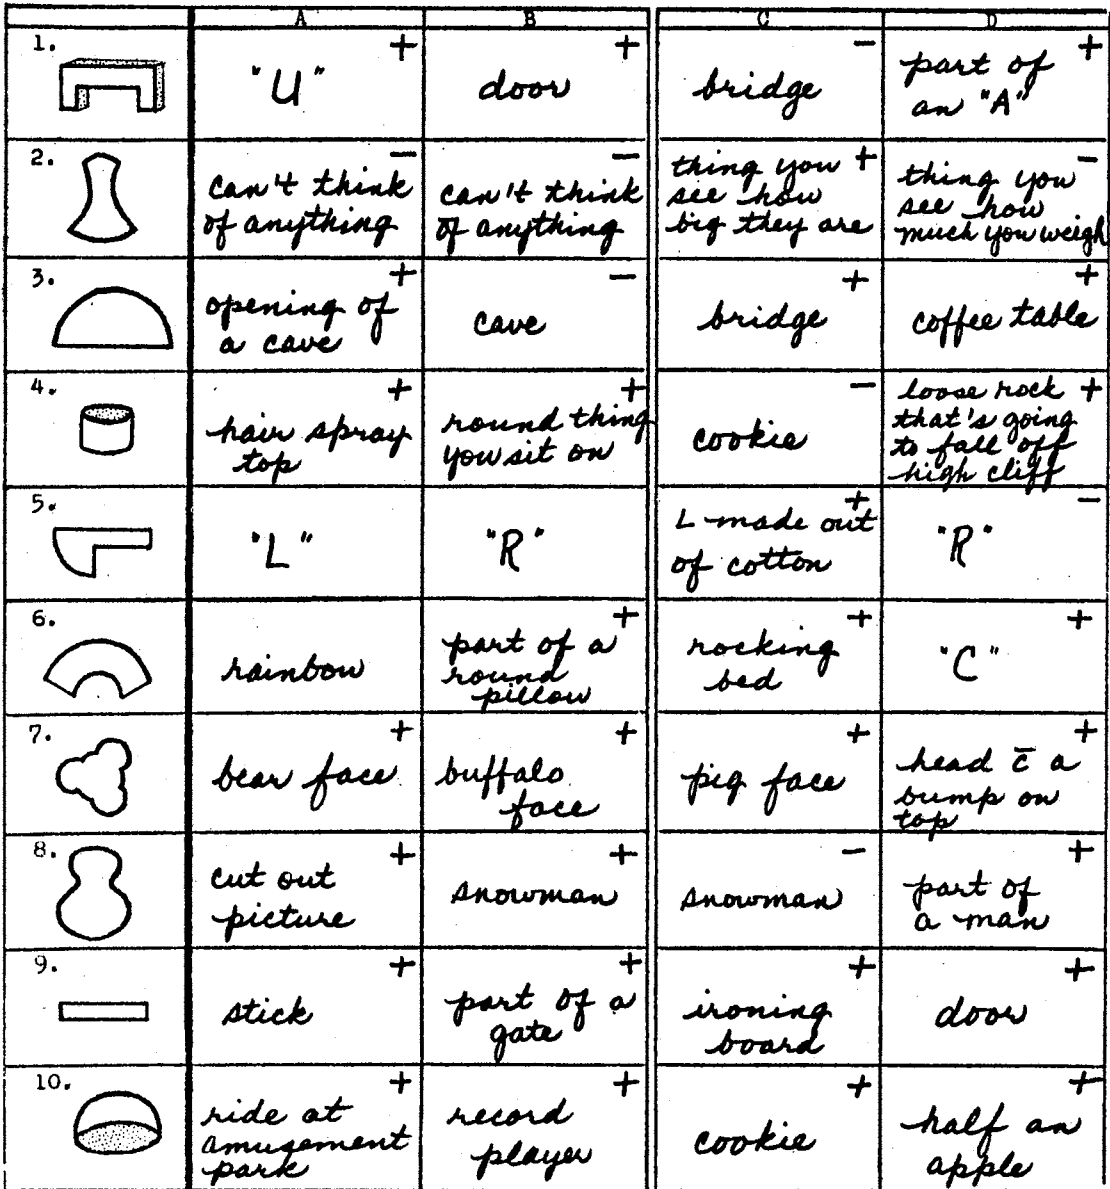 A B C D
1. + + - +
"U" door bridge part of
an "A"
2. - - + -
can't think
of anything
can't think
of anything
thing you
see how
big they are
thing you
see how
much you weigh
3. + - + +
opening of
a cave
cave
bridge
coffee table
4. + + - +
hair spray
top
round thing
you sit on
cookie
loose rock
that's going
to fall off
high cliff
5. + -
"L"
"R"
L made out
of cotton
"R"
6. + + +
rainbow
part of a
round
pillow
rocking
bed
"C"
7. + + + +
bear face
buffalo
face
pig face
head c̄ a
bump on
top
8. + + - +
cut out
picture
snowman
snowman
part of
a man
9. + + + +
stick
part of a
gate
ironing
board
door
10. + + + +
ride at
amusement
park
record
player
cookie
half an
apple